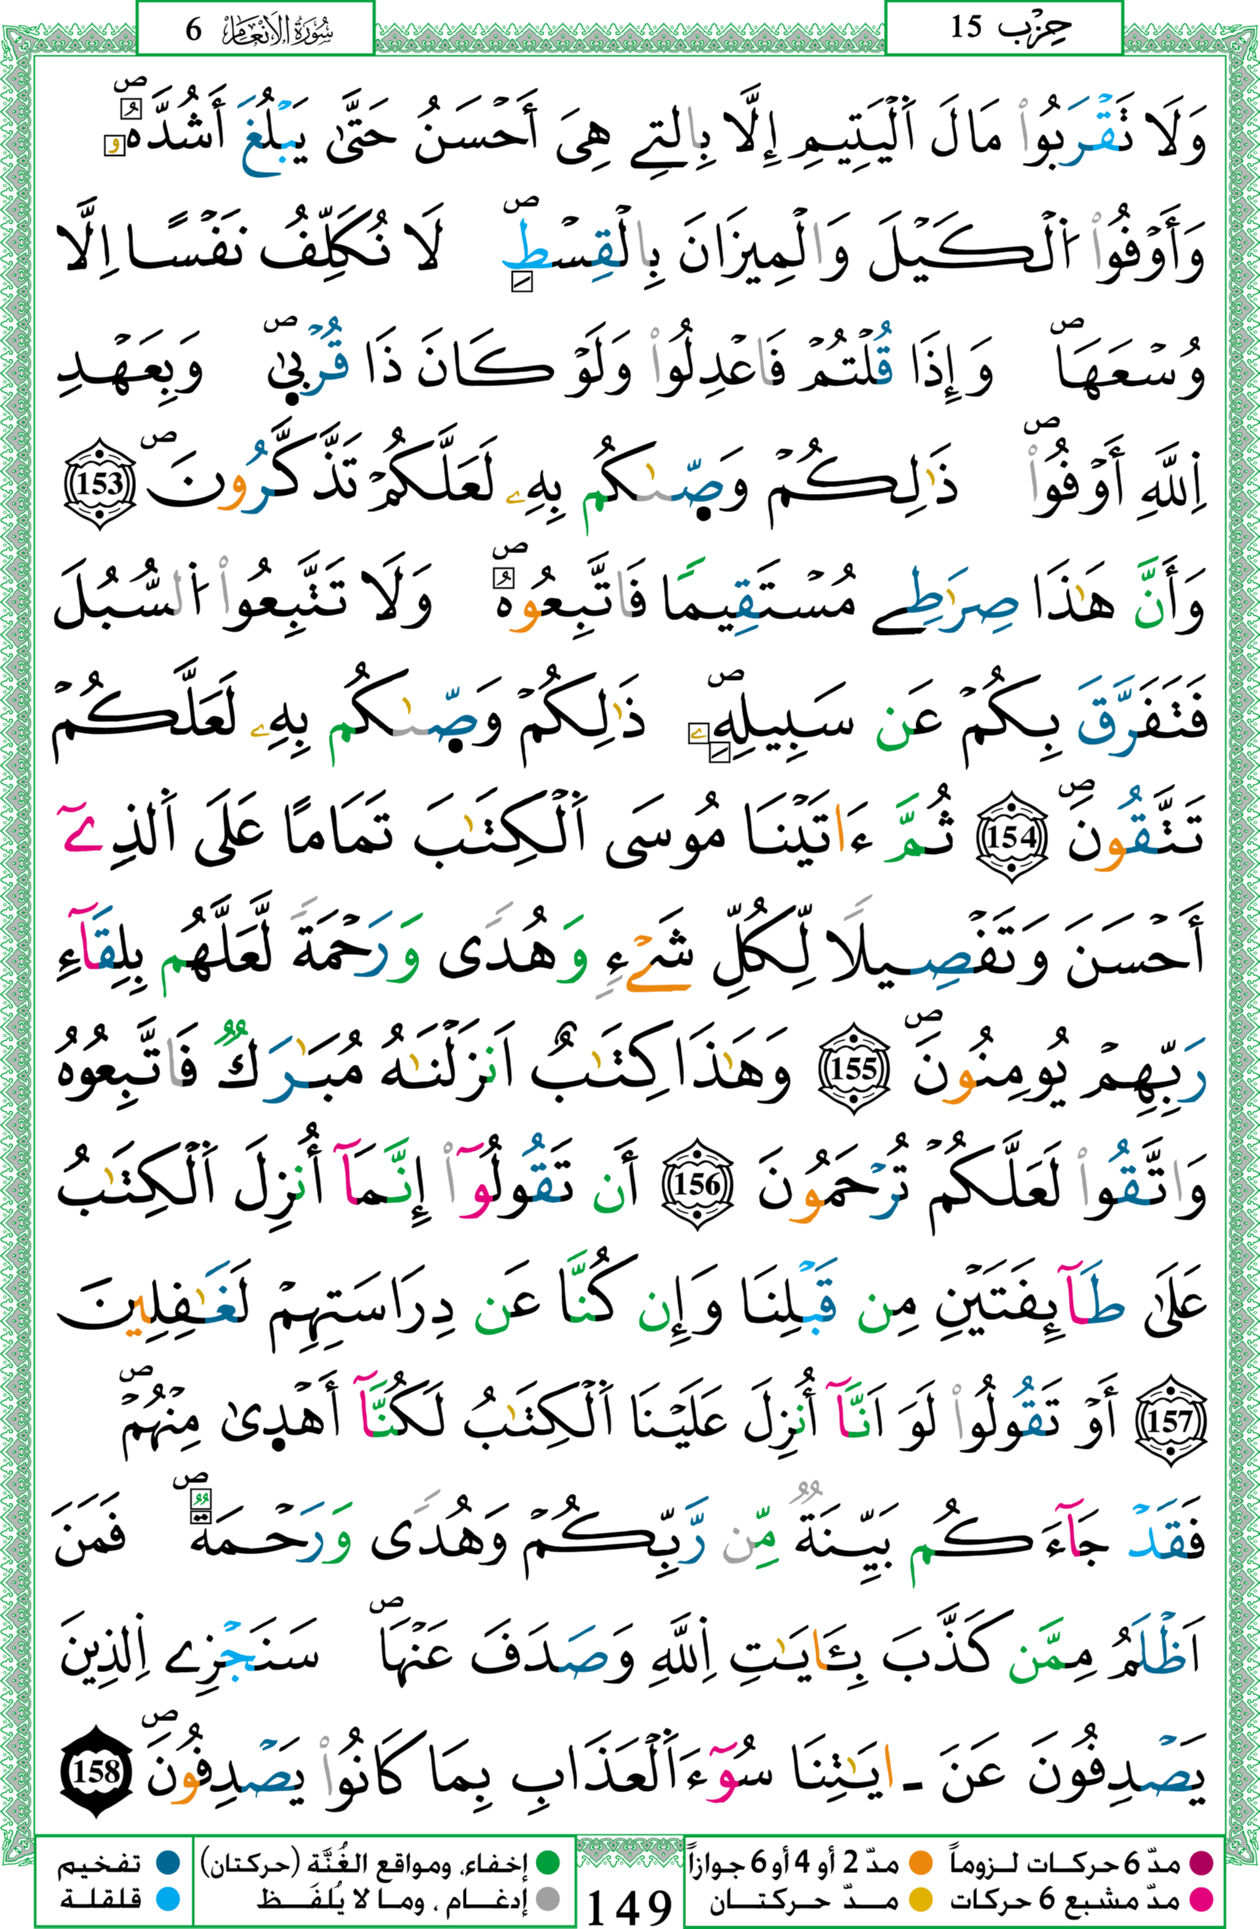 حِزْب 15
سُورَةُ الْأَنْعَامِ 6
وَلَا تَقْرَبُواْ مَالَ اَ۬لْيَتِيمِ إِلَّا بِالتِے هِيَ أَحْسَنُ حَتَّىٰ يَبْلُغَ أَشُدَّهُۥۖ
وَأَوْفُواْ اُ۬لْكَيْلَ وَالْمِيزَانَ بِالْقِسْطِۖ لَا نُكَلِّفُ نَفْساً اِلَّا
وُسْعَهَاۖ وَإِذَا قُلْتُمْ فَاعْدِلُواْ وَلَوْ كَانَ ذَا قُرْبۭيٰۖ وَبِعَهْدِ
اِ۬للَّهِ أَوْفُواْۖ ذَٰلِكُمْ وَصّۭيٰكُم بِهِۦ لَعَلَّكُمْ تَذَّكَّرُونَۖ 153
وَأَنَّ هَٰذَا صِرَٰطِے مُسْتَقِيماً فَاتَّبِعُوهُۖ وَلَا تَتَّبِعُواْ اُ۬لسُّبُلَ
فَتَفَرَّقَ بِكُمْ عَن سَبِيلِهِۦۖ ذَٰلِكُمْ وَصّۭيٰكُم بِهِۦ لَعَلَّكُمْ
تَتَّقُونَۖ 154 ثُمَّ ءَاتَيْنَا مُوسَى اَ۬لْكِتَٰبَ تَمَاماً عَلَى اَ۬لذِےٓ
أَحْسَنَ وَتَفْصِيلاً لِّكُلِّ شَےْءٍ وَهُدًى وَرَحْمَةً لَّعَلَّهُم بِلِقَآءِ
رَبِّهِمْ يُومِنُونَۖ 155 وَهَٰذَا كِتَٰبٌ اَنزَلْنَٰهُ مُبَٰرَكٌ فَاتَّبِعُوهُ
وَاتَّقُواْ لَعَلَّكُمْ تُرْحَمُونَ 156 أَن تَقُولُوٓاْ إِنَّمَآ أُنزِلَ اَ۬لْكِتَٰبُ
عَلَىٰ طَآئِفَتَيْنِ مِن قَبْلِنَا وَإِن كُنَّا عَن دِرَاسَتِهِمْ لَغَٰفِلِينَ
157 أَوْ تَقُولُواْ لَوَ اَنَّآ أُنزِلَ عَلَيْنَا اَ۬لْكِتَٰبُ لَكُنَّآ أَهْدۭىٰ مِنْهُمْۖ
فَقَدْ جَآءَكُم بَيِّنَةٌ مِّن رَّبِّكُمْ وَهُدًى وَرَحْمَةٌۖ فَمَنَ
اَظْلَمُ مِمَّن كَذَّبَ بِـَٔايَٰتِ اِ۬للَّهِ وَصَدَفَ عَنْهَاۖ سَنَجْزِے اِ۬لذِينَ
يَصْدِفُونَ عَنَ ـ ايَٰتِنَا سُوٓءَ اَ۬لْعَذَابِ بِمَا كَانُواْ يَصْدِفُونَۖ 158
مدّ 6 حركات لـزوماً مدّ 2 أو 4 أو 6 جوازاً
مدّ مشبع 6 حركات مـدّ حـركتـان
إخفاء، ومواقع الغُنَّة (حركتان)
إدغـام ، ومـا لا يُلفَـظ
تفخيم
قلقلة
149